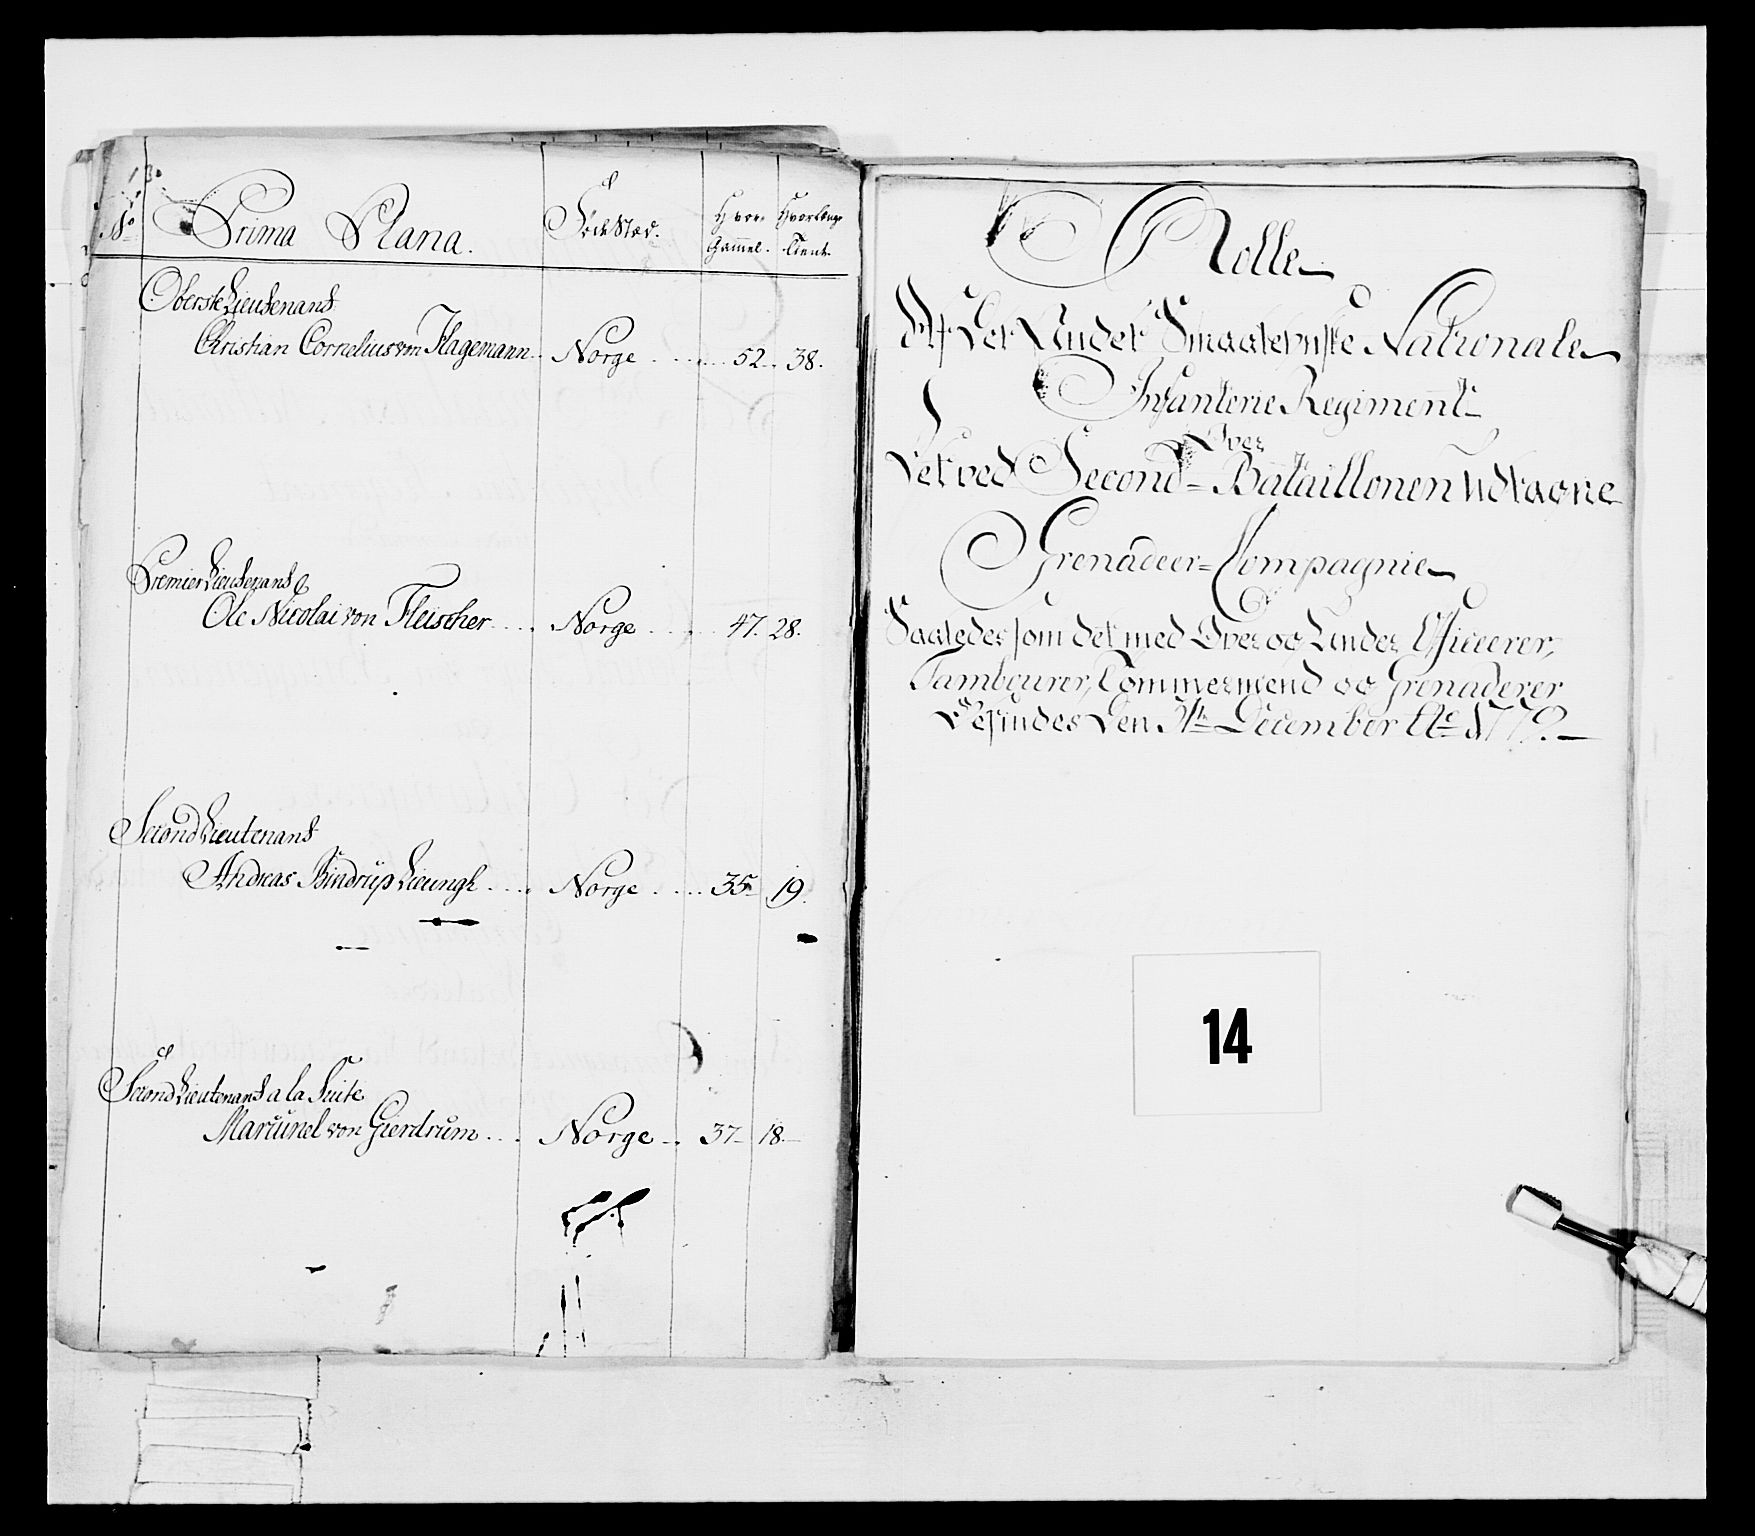 No Prima Plana. Födested. Hvor Gammel. Hvorlænge Tient.
Oberste Lieutenant
Christian Cornelius von Hagemann .. Norge ..... 52 .. 38.
Premier Lieutenant
Ole Nicolai von Fleischer .... Norge .... 47. 28.
Second Lieutenant
Andreas Bindrup Lieungh .... Norge .... 35 19.
Second Lieutenant a la Suite
von Gierdrum ... Norge .. 37 18.
Rolle
Det Smaalenske Nationale
Infanterie Regiment
Over
Det ved Second-Bataillonen Udtagne
Grenadeer-Compagnie
Saaledes som det med Over og Under Officerer,
Tambourer, Tömmermænd og Grenaderer
Befindes den December Ao 1779.
14